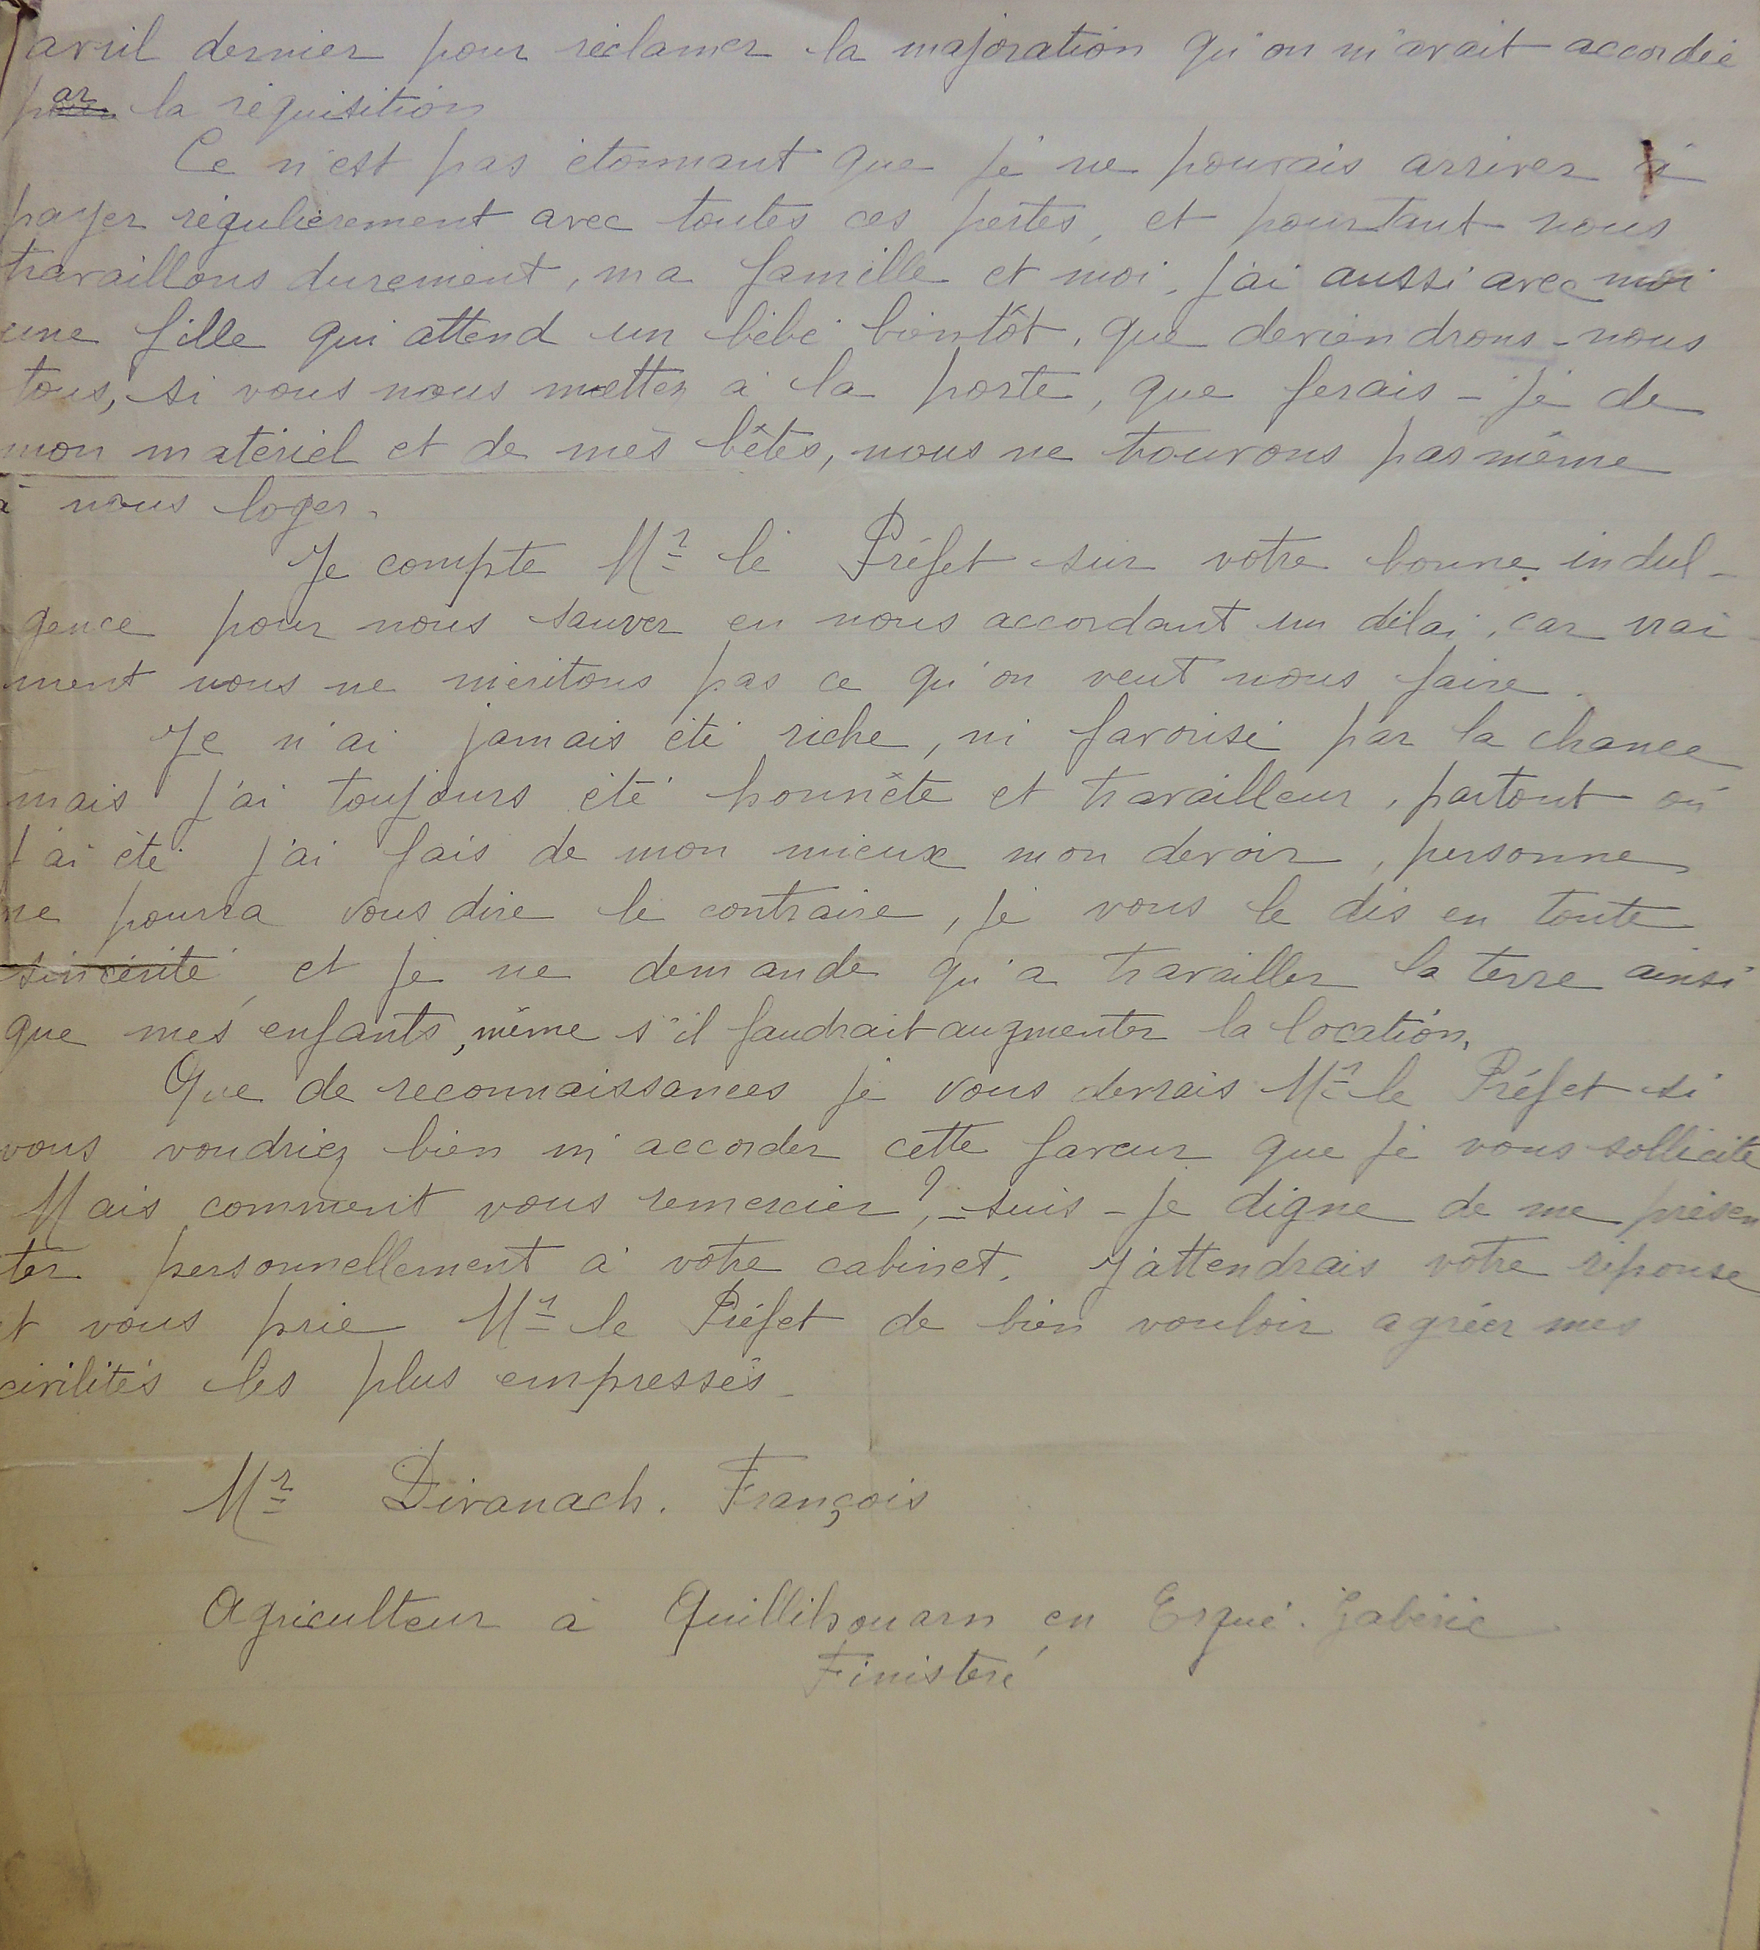 avril dernier pour réclamer la majoration qu'on m'avait accordée
par la réquisition
Ce n'est pas étonnant que je ne pouvais arriver à
payer régulièrement avec toutes ces pertes, et pourtant nous
travaillons durement, ma famille et moi, j'ai aussi avec moi
une fille qui attend un bébé bientôt, que deviendrons-nous
tous, si vous nous mettez à la porte, que ferais-je de
mon matériel et de mes bêtes, nous ne trouvons pas même
à nous loger.
Je compte Mr le Préfet sur votre bonne indul-
gence pour nous sauver en nous accordant un délai, car vrai-
ment nous ne méritons pas ce qu'on veut nous faire.
Je n'ai jamais été riche, ni favorisé par la chance
mais j'ai toujours été honnête et travailleur, partout où
j'ai été j'ai fais de mon mieux mon devoir, personne
ne pourra vous dire le contraire, je vous le dis en toute
sincérité, et je ne demande qu'a travailler la terre ainsi
que mes enfants, même s'il faudrait augmenter la location.
Que de reconnaissances je vous devrais Mr le Préfet si
vous voudriez bien m'accorder cette faveur que je vous sollicite
Mais comment vous remercier?, - suis-je digne de me présen
ter personnellement à votre cabinet. J'attendrais votre réponse
et vous prie Mr le Préfet de bien vouloir agréer mes
civilités les plus empressés -
Mr Divanach. François
Agriculteur à Quillihouarn en Ergué. Gabéric
Finistère